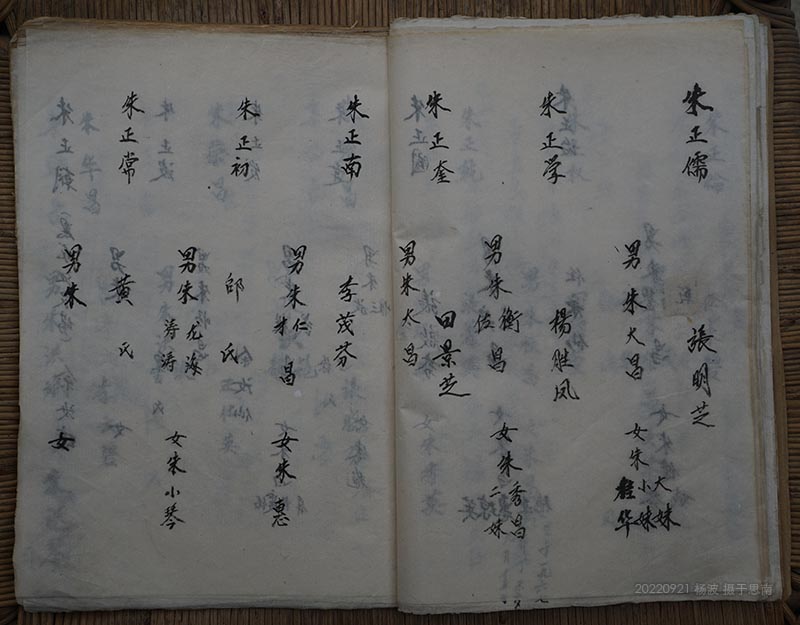 朱正儒
張明芝
男朱大昌
女朱
大妹
小妹
华
朱正学
楊胜凤
男朱
衡
位
昌
女朱
秀昌
二妹
朱正奎
田景芝
男朱大昌
朱正南
李茂芬
男朱
仁
才
昌
女朱惠
朱正初
邱氏
男朱
龙海
涛涛
女朱小琴
朱正常
黄氏
男朱
女
20220921 杨波 摄于思南